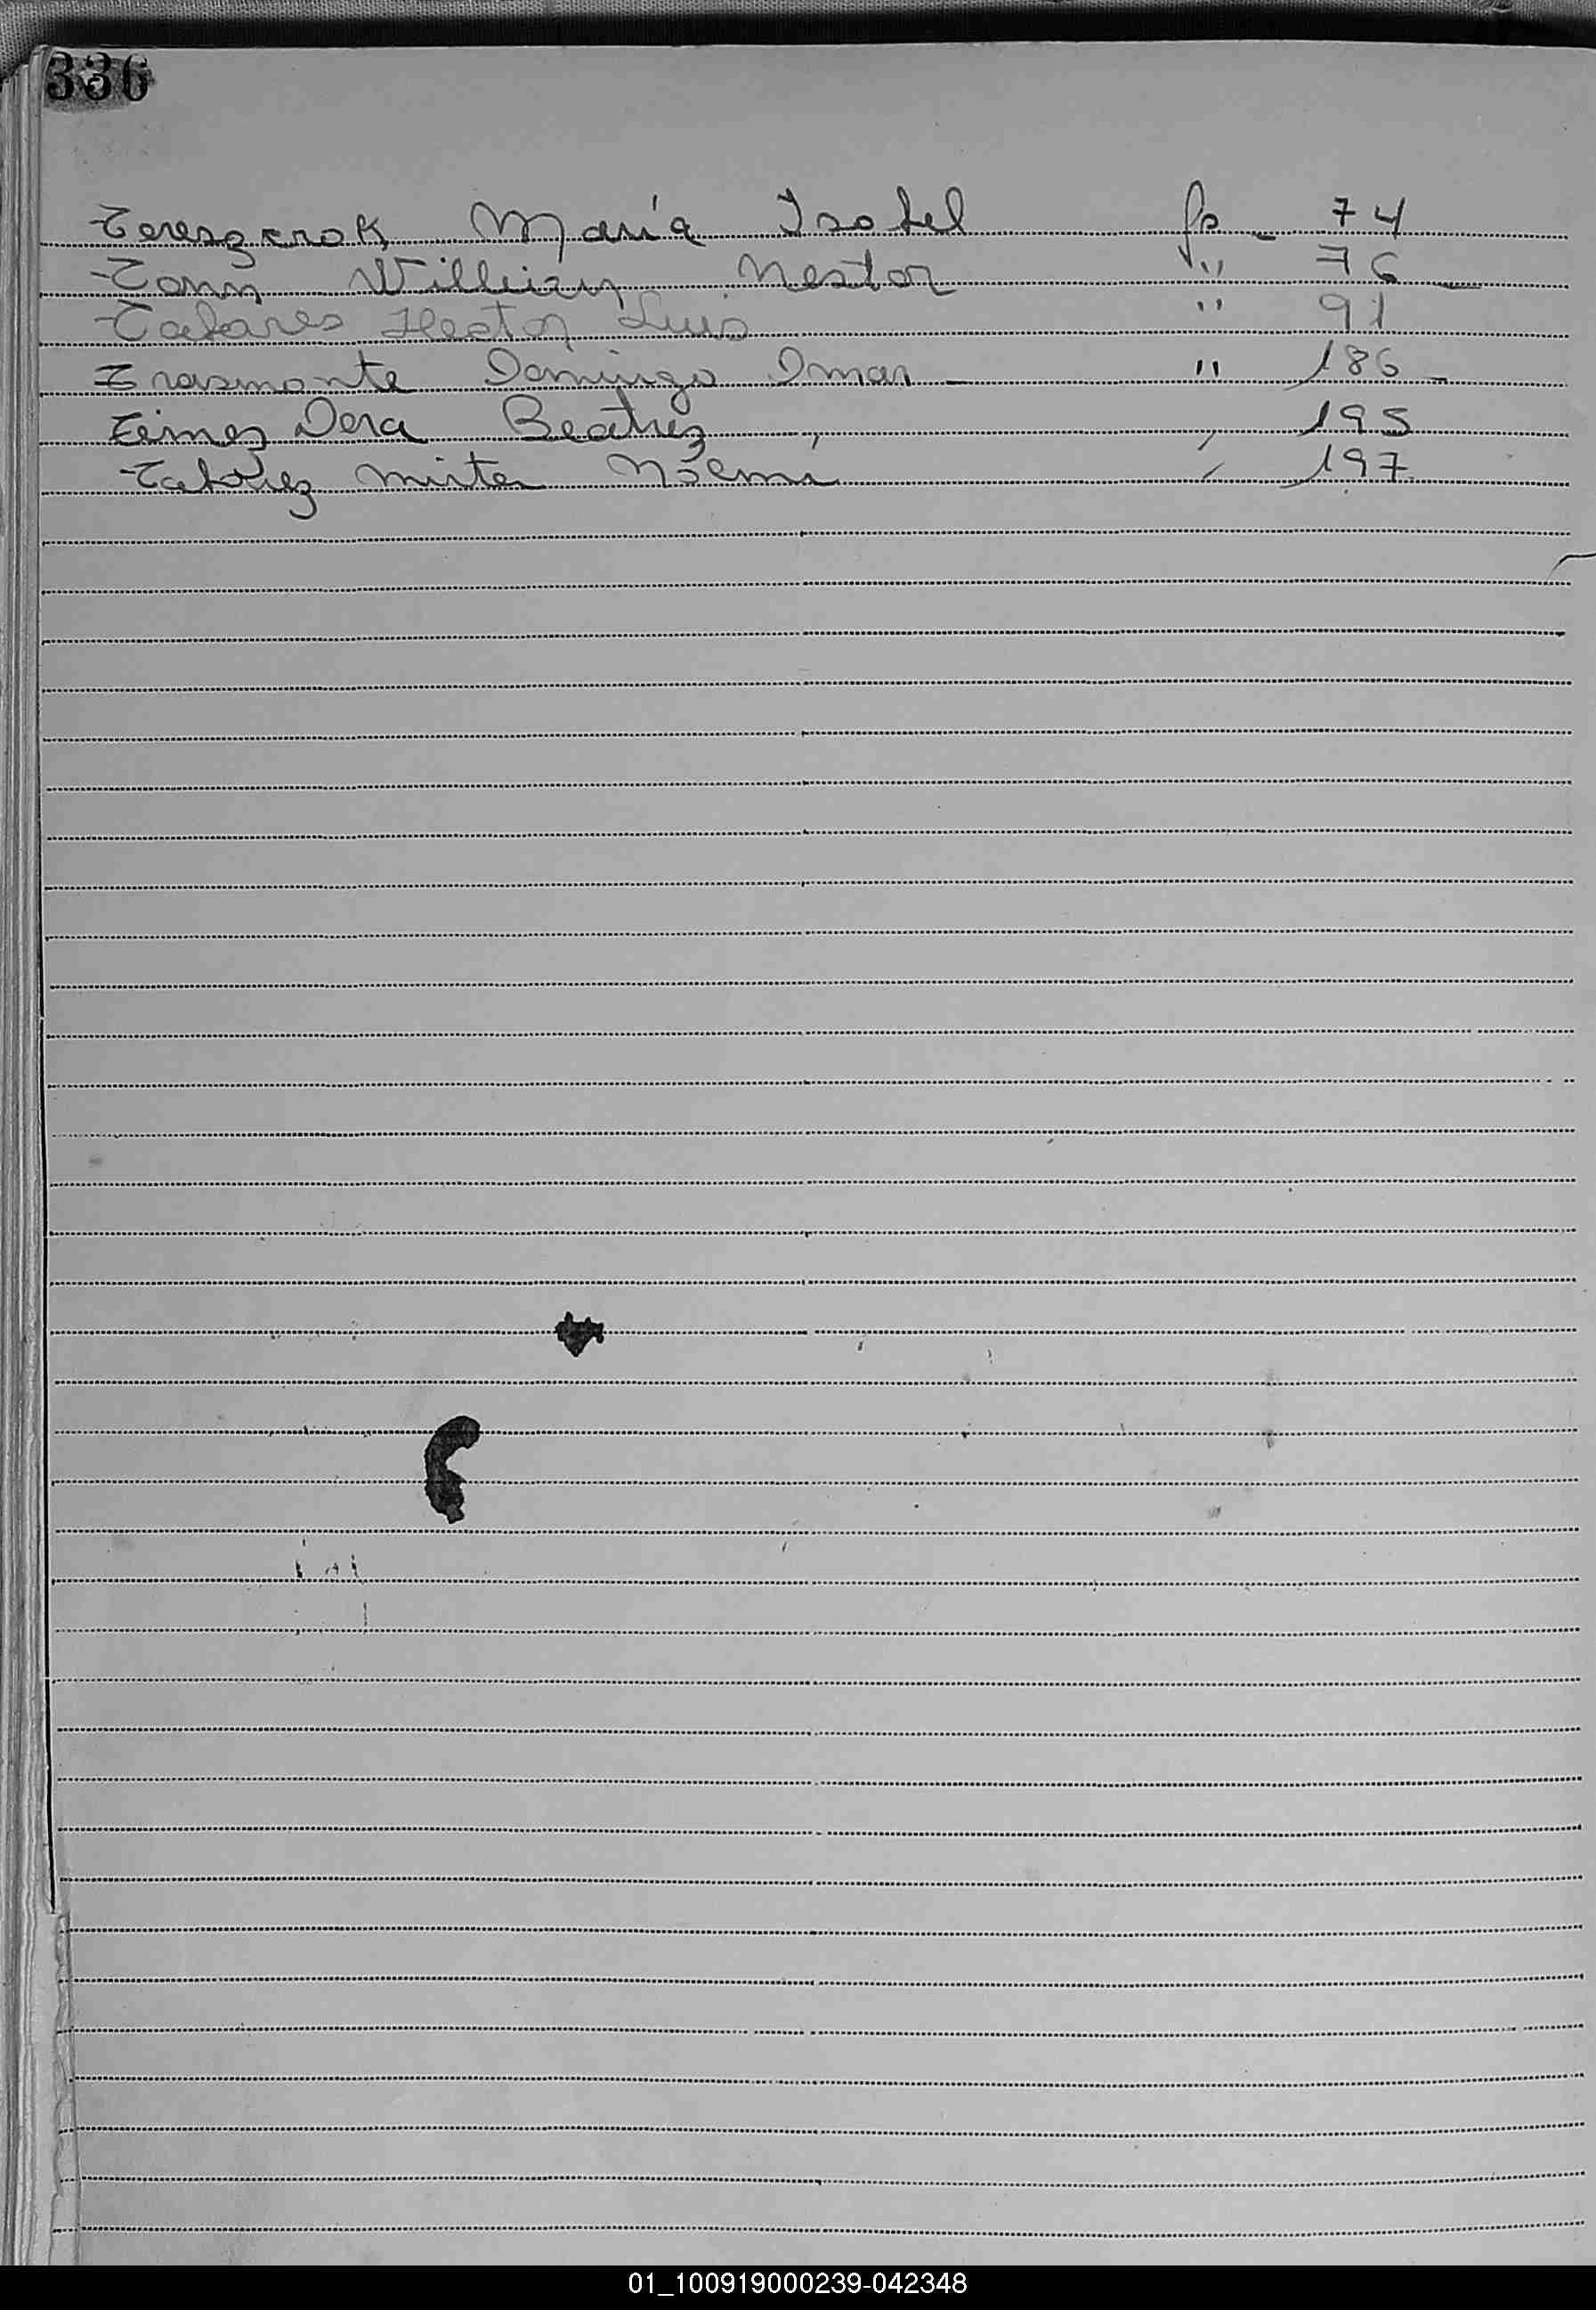 336
Tereszczok María Isabel fs - 74
Tonn Willian Nestor " 76 -
Tabares Hector Luis " 91
Trasmonte Domingo Omar - " 186 -
Dora Beatriz , 195
Mirta Noemi 197
01_100919000239-042348